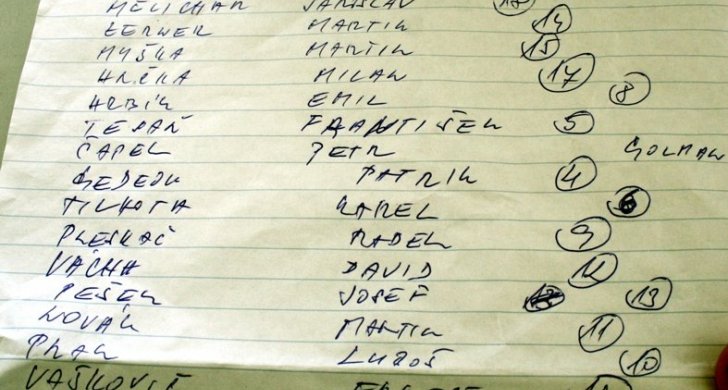 MELICHAR JAROSLAV
LERNER MARTIN 14
MYŠKA MARTIN 15
HRČKA MILAN 17
HRBÍK EMIL 8
TEPAŇ FRANTIŠEK 5
ČAPEL PETR GOLMAN
GEDEON PATRIK 4
KAREL 6
PLESKAČ RADEK 9
VÁCHA DAVID
PEŠEK JOSEF 13
NOVÁK MARTIN 11
LUBOŠ 10